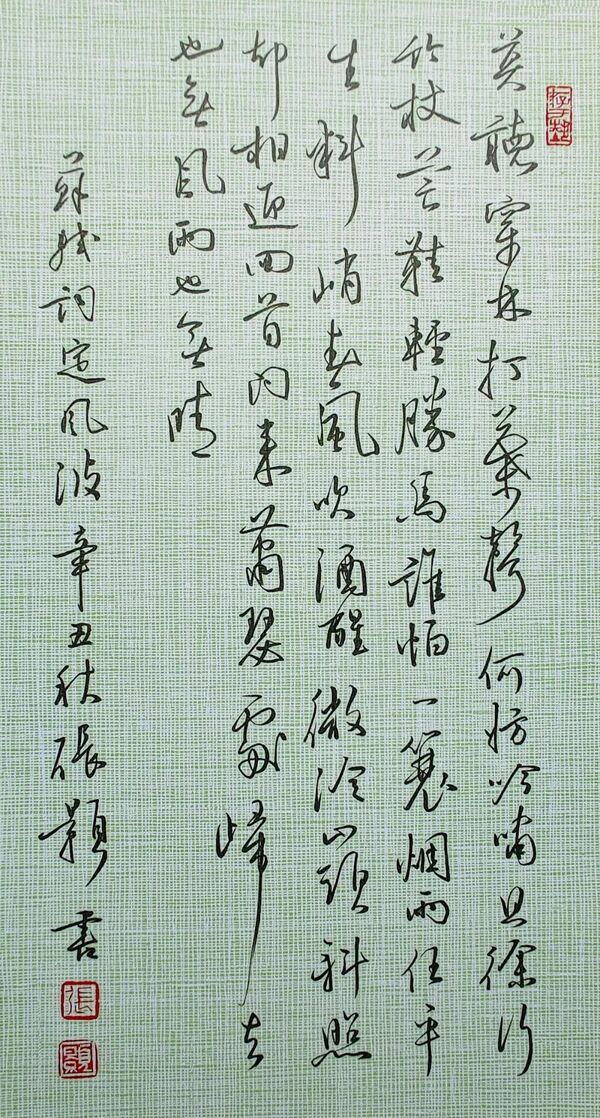 莫聽穿林打葉聲何妨吟嘯且徐行
竹杖芒鞋輕勝馬誰怕一蓑烟雨任平
生料峭春風吹酒醒微冷山頭斜照
却相迎回首向來蕭瑟處歸去
也無風雨也無晴
蘇軾詞定風波辛丑秋張書
張